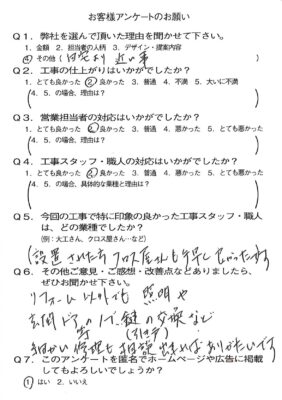 お客様アンケートのお願い
Q1. 弊社を選んで頂いた理由を聞かせて下さい。
1. 金額 2. 担当者の人柄 3. デザイン・提案内容
④ その他（自宅より近い事）
Q2. 工事の仕上がりはいかがでしたか？
1. とても良かった ② 良かった 3. 普通 4. 不満 5. 大いに不満
4. 5. の場合、理由は？
Q3. 営業担当者の対応はいかがでしたか？
1. とても良かった ② 良かった 3. 普通 4. 悪かった 5. とても悪かった
4. 5. の場合、理由は？
Q4. 工事スタッフ・職人の対応はいかがでしたか？
1. とても良かった ② 良かった 3. 普通 4. 悪かった 5. とても悪かった
4. 5. の場合、具体的な業種と理由は？
Q5. 今回の工事で特に印象の良かった工事スタッフ・職人
は、どの業種でしたか？
(例：大工さん、クロス屋さん…など)
設置された方 クロス屋さんも
Q6. その他ご意見・ご感想・改善点などありましたら、
ぜひお聞かせ下さい。
リフォーム以外でも 照明や
玄関ドアのノブ、鍵の交換など
等 (引き手)
細かい修理も相談出来ればありがたいです
Q7. このアンケートを匿名でホームページや広告に掲載
してもよろしいでしょうか？
① はい 2. いいえ